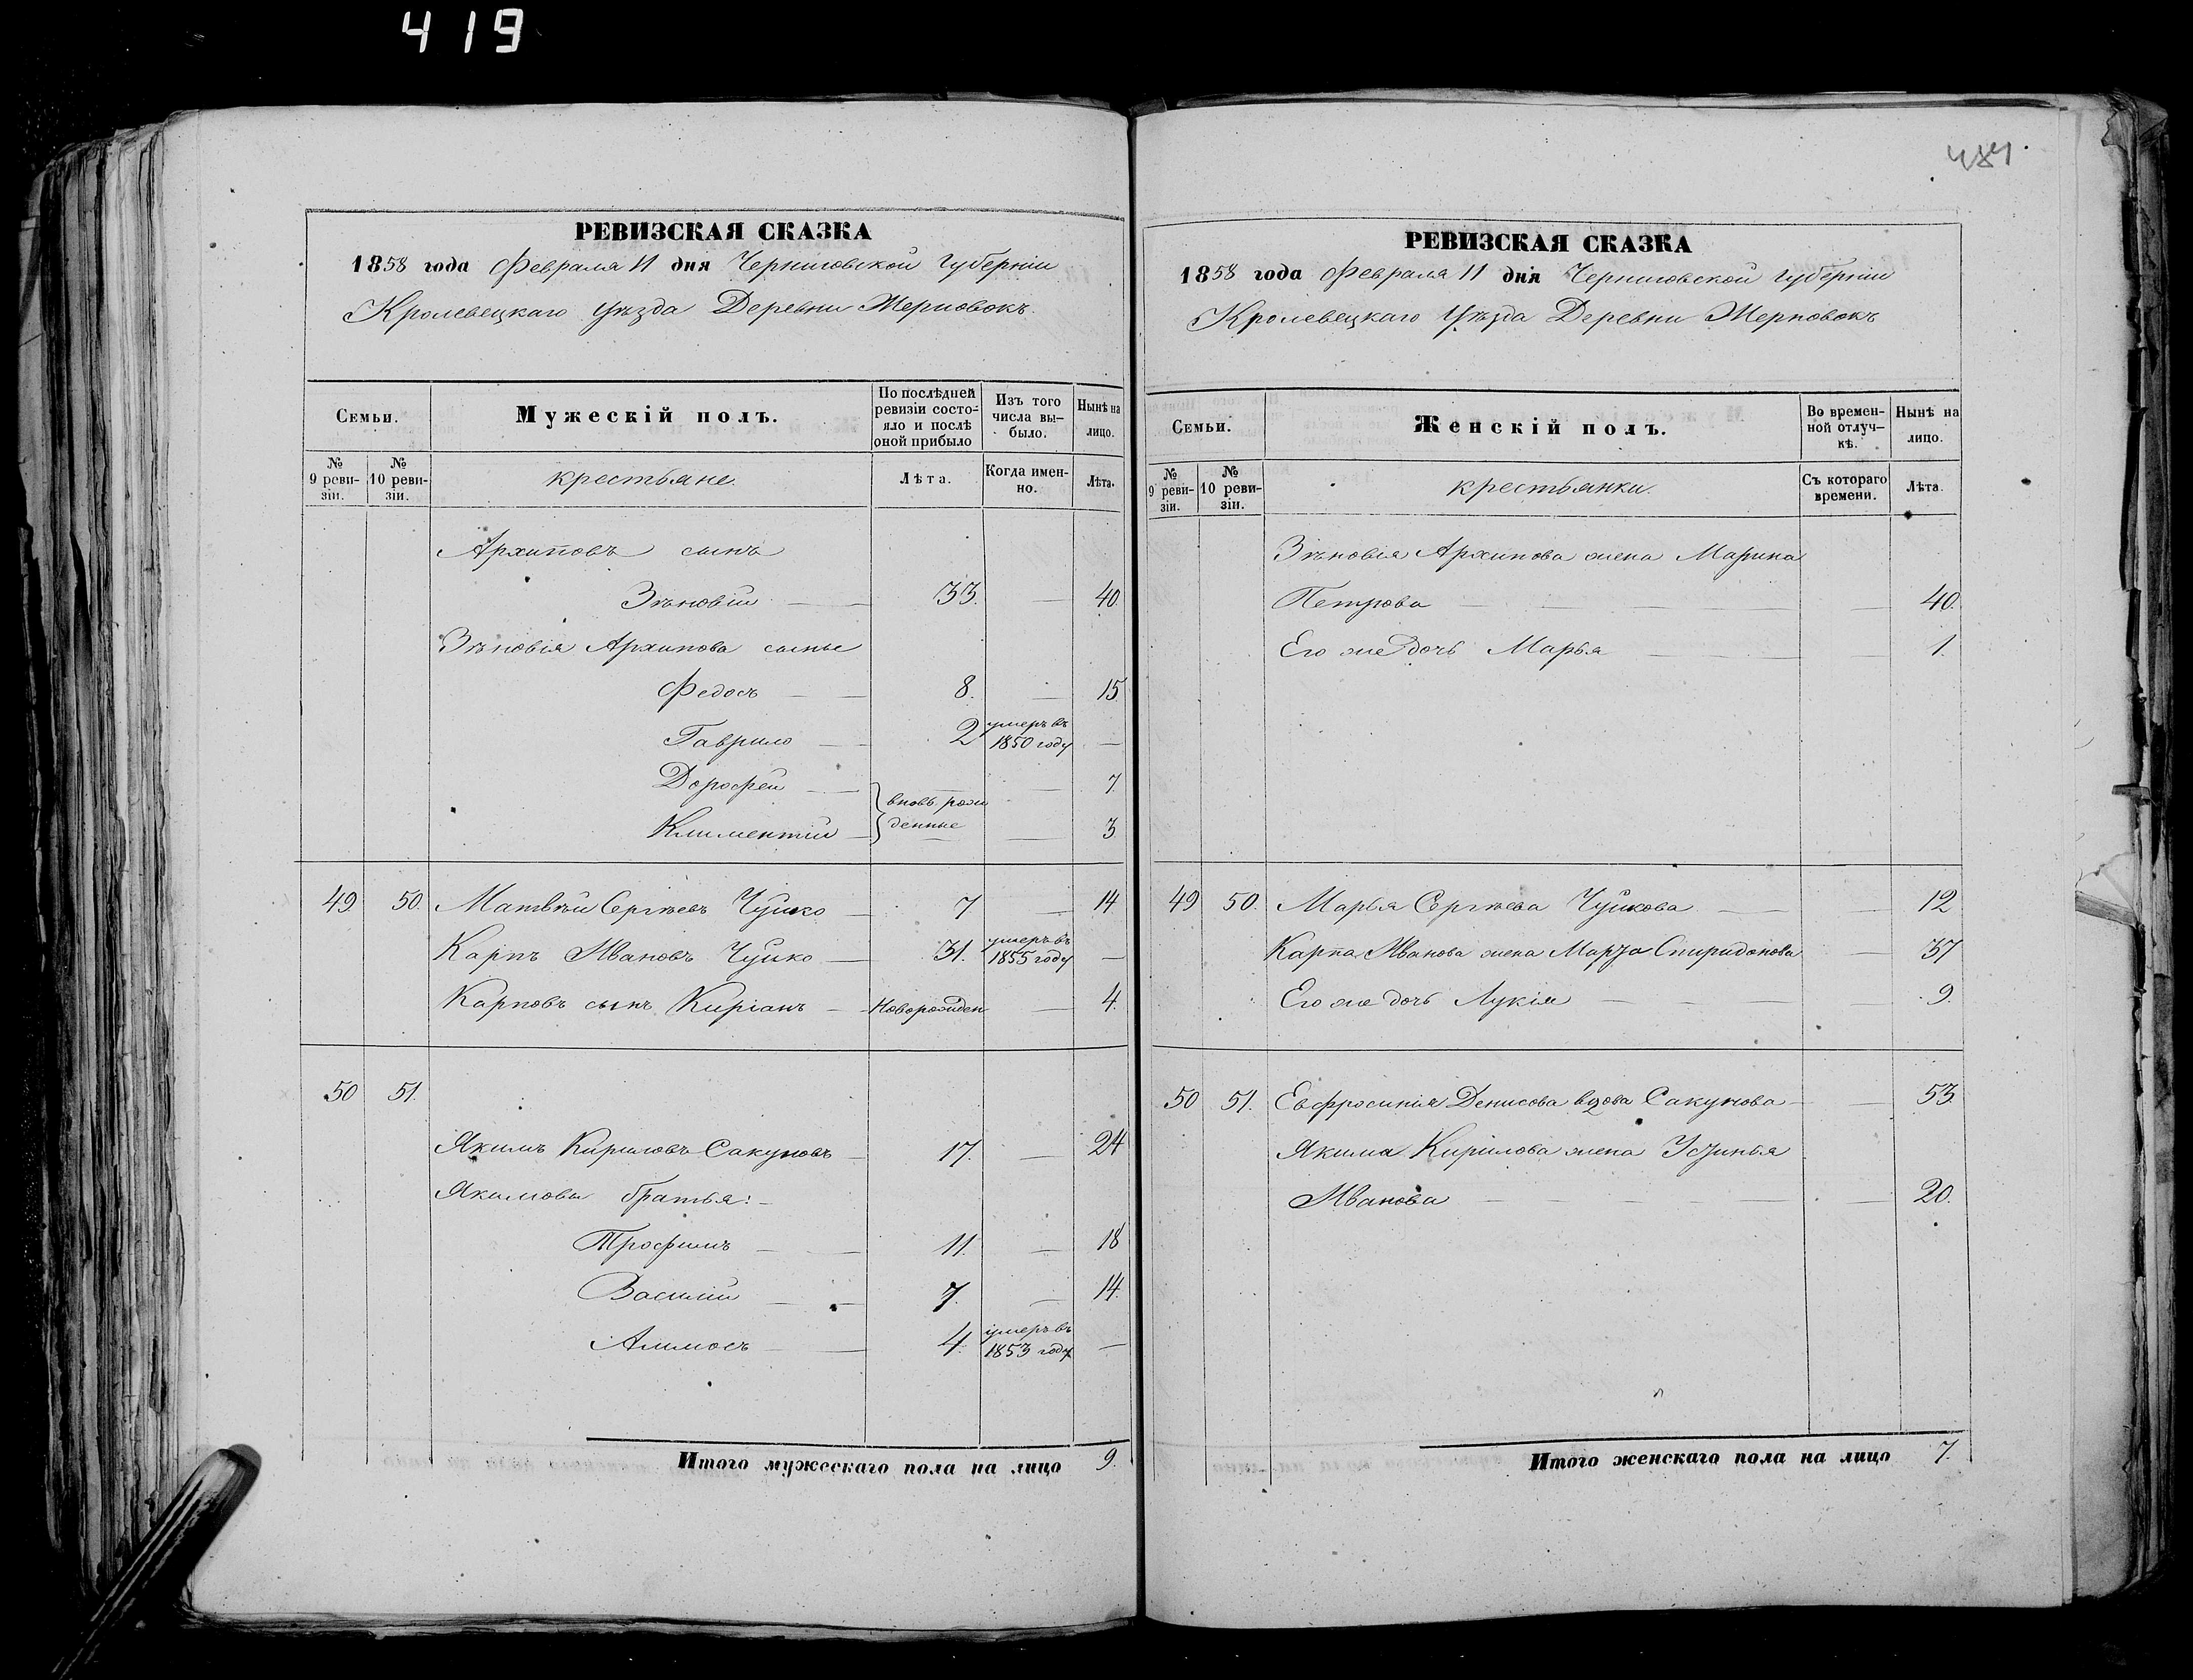 419
РЕВИЗСКАЯ СКАЗКА
1858 года Февраля 11 дня Черниговской Губерніи
Кролевецкаго Уѣзда Деревни Жерновокъ.
Семьи.
Мужескій полъ.
По послѣдней ревизіи состояло и послѣ оной прибыло
Изъ того числа выбыло.
Нынѣ на лицо.
№ 9 ревизіи.
№ 10 ревизіи.
крестьяне.
Лѣта.
Когда именно.
Лѣта.
Архиповъ сынъ
Зѣновій 33. 40.
Зѣновія Архипова сыны
Федосъ 8. 15
Гаврило 2 умеръ въ 1850 году
Дорофей 7.
вновь рожденные
Климентій 3
49 50. Матвѣй Сергѣевъ Чуйко 7 14
Карпъ Ивановъ Чуйко 31. умеръ въ 1855 году
Карповъ сынъ Киріанъ Новорожден 4.
50 51.
Якимъ Кириловъ Сакуновъ 17. 24
Якимовы братья:
Трофимъ 11. 18
Василій 7. 14.
Аммосъ 4. умеръ въ 1853 году
Итого мужескаго пола на лицо 9.
РЕВИЗСКАЯ СКАЗКА
1858 года Февраля 11 дня Черниговской Губерніи
Кролевецкаго Уѣзда Деревни Жерновокъ
Семьи.
Женскій полъ.
Во временной отлучкѣ.
Нынѣ на лицо.
№ 9 ревизіи.
№ 10 ревизіи.
крестьянки.
Съ котораго времени.
Лѣта.
Зѣновія Архипова жена Марина
Петрова 40.
Его же дочь Марья 1.
49 50. Марья Сергѣева Чуйкова 12
Карпа Иванова жена Спиридонова 37
Его же дочь Лукія 9.
50 51. Евфросинія Денисова вдова Сакунова 53.
Якима Кирилова жена Устинья
Иванова 20.
Итого женскаго пола на лицо 7.